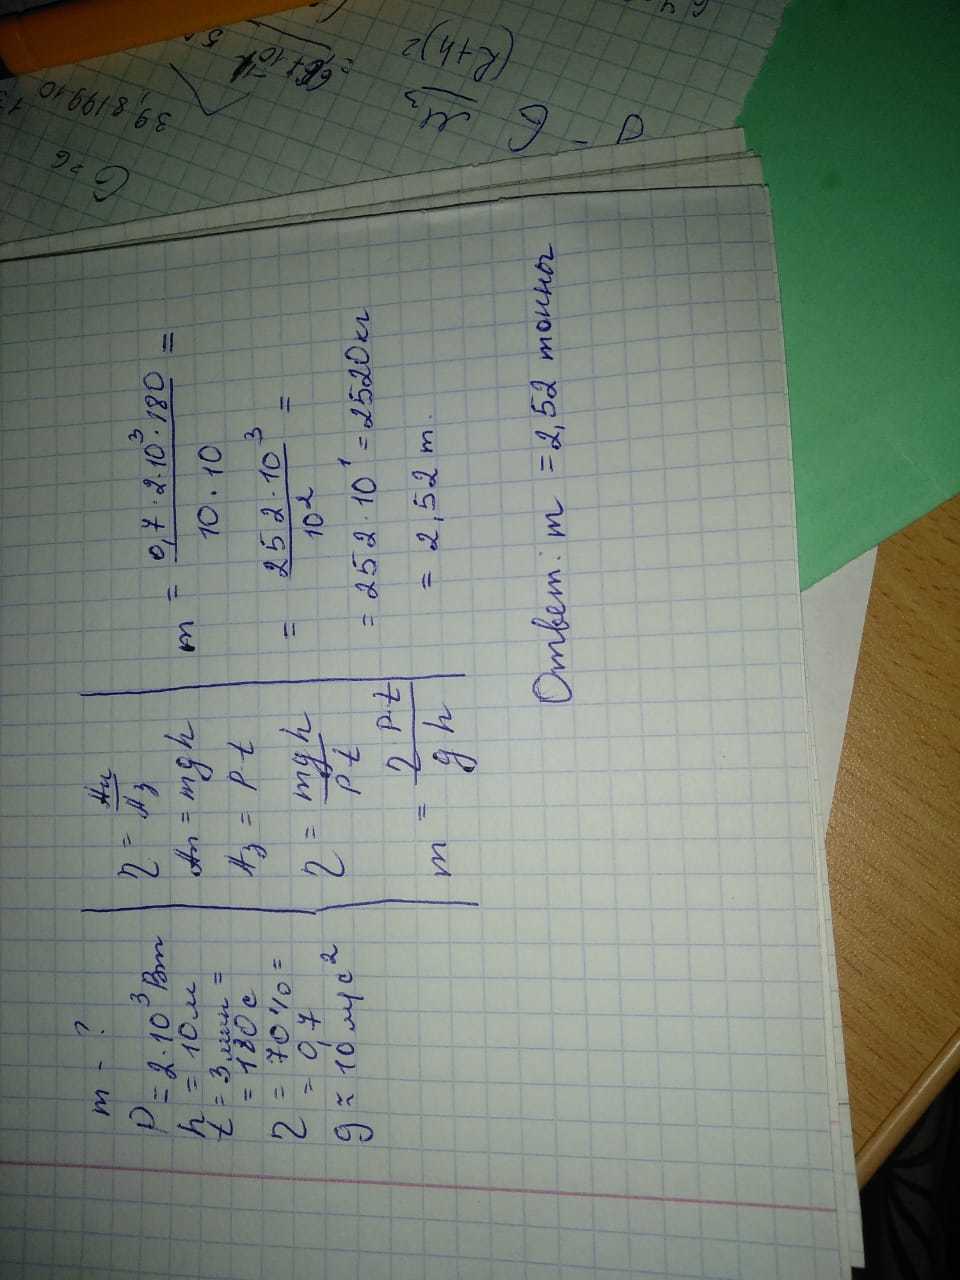 m - ?
P = 2·10³ Вт
h = 10 м
t = 3 мин =
= 180 с
η = 70% =
= 0,7
g ≈ 10 м/с²
η = Aп/Aз
Aп = mgh
Aз = Pt
η = mgh/Pt
m = ηPt/gh
m = 0,7·2·10³·180/10·10 =
= 252·10³/10² =
= 252·10¹ = 2520 кг
= 2,52 т.
Ответ: m = 2,52 тонны
(R+h)²
39,819910
G = 6